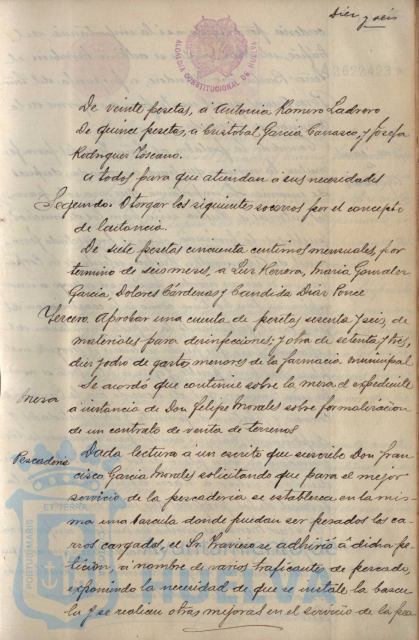 Diez y seis
ALCALDIA CONSTITUCIONAL DE HUELVA
De veinte pesetas, a Antonia Romero Ladrero
De quince pesetas, a Cristobal Garcia Carrasco, y Josefa
Rodriguez Toscano.
A todos para que atiendan á sus necesidades
Segundo. Otorgar los siguientes socorros por el concepto
de lactancia.
De siete pesetas cincuenta centimos mensuales, por
termino de seis meses, a Luz Herrera, Maria Gonzalez
Garcia, Dolores Cárdenas y Candida Diaz Ponce
Tercero. Aprobar una cuenta de pesetas sesenta y seis, de
materiales para desinfecciones; y otra de setenta y tres,
diez y ocho de gastos menores de la farmacia municipal
Mesa
Se acordó que continue sobre la mesa el expediente
a instancia de Don Felipe Morales sobre formalizacion
de un contrato de venta de terrenos
Pescaderia
Dada lectura á un escrito que suscribe Don Fran
cisco Garcia Morales solicitando que para el mejor
servicio de la pescaderia se establezca en la mis-
ma una bascula donde puedan ser pesados los ca-
rros cargados, el Sr. Traviero se adhirió á dicha pe-
tición, á nombre de varios traficantes de pescado,
exponiendo la necesidad de que se instale la bascu
la y se realicen otras mejoras en el servicio de la pes